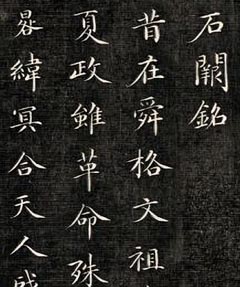 石闕銘
昔在舜格文祖
夏政雖革命殊
晷緯冥合天人